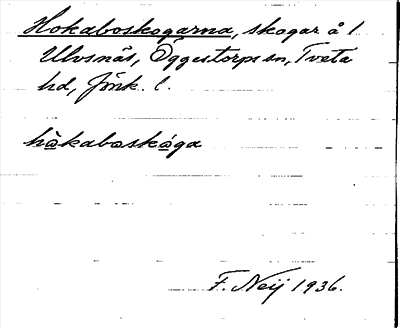 Hokaboskogarna, skogar å 1
Ulvsnäs, Öggestorps sn, Tveta
hd, Jönk. l.
hòkaboskóga
F. Neij 1936.